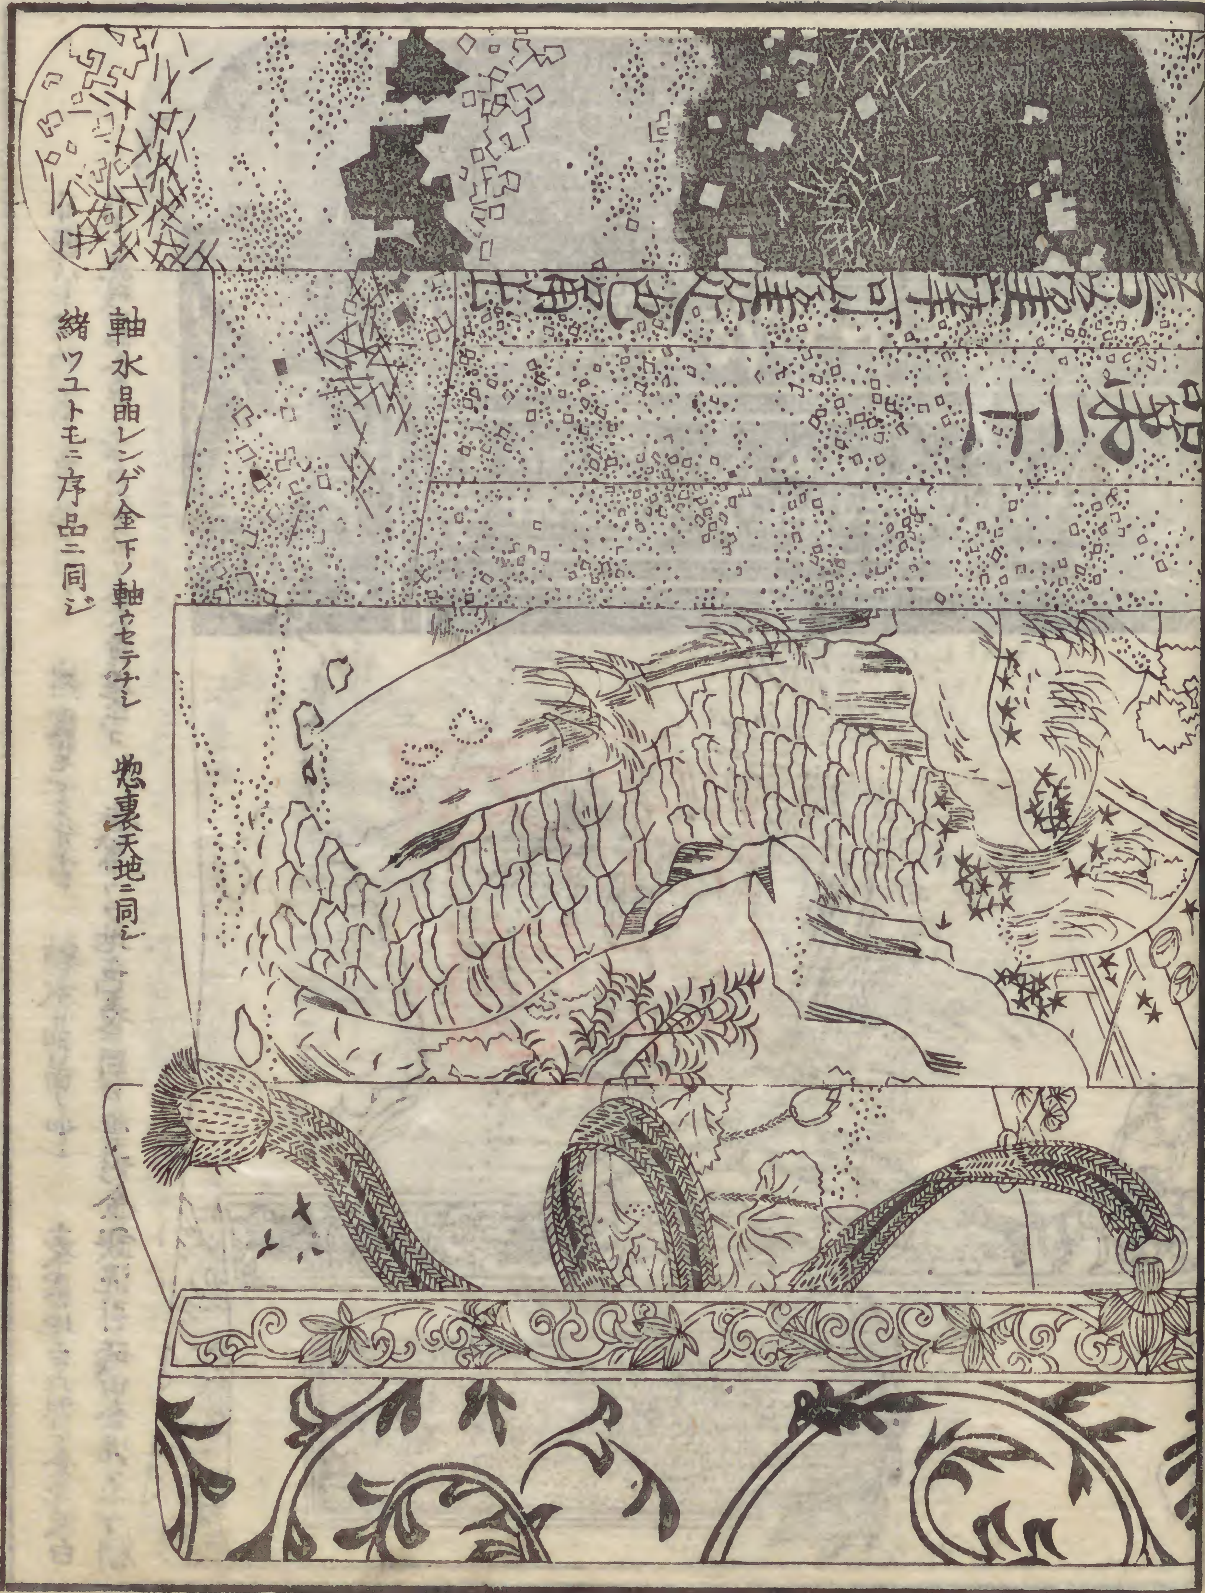 品第二十一
軸水晶レンゲ金下ノ軸ウセテナシ　惣裏天地ニ同ジ
緒ツユトモニ序品ニ同ジ